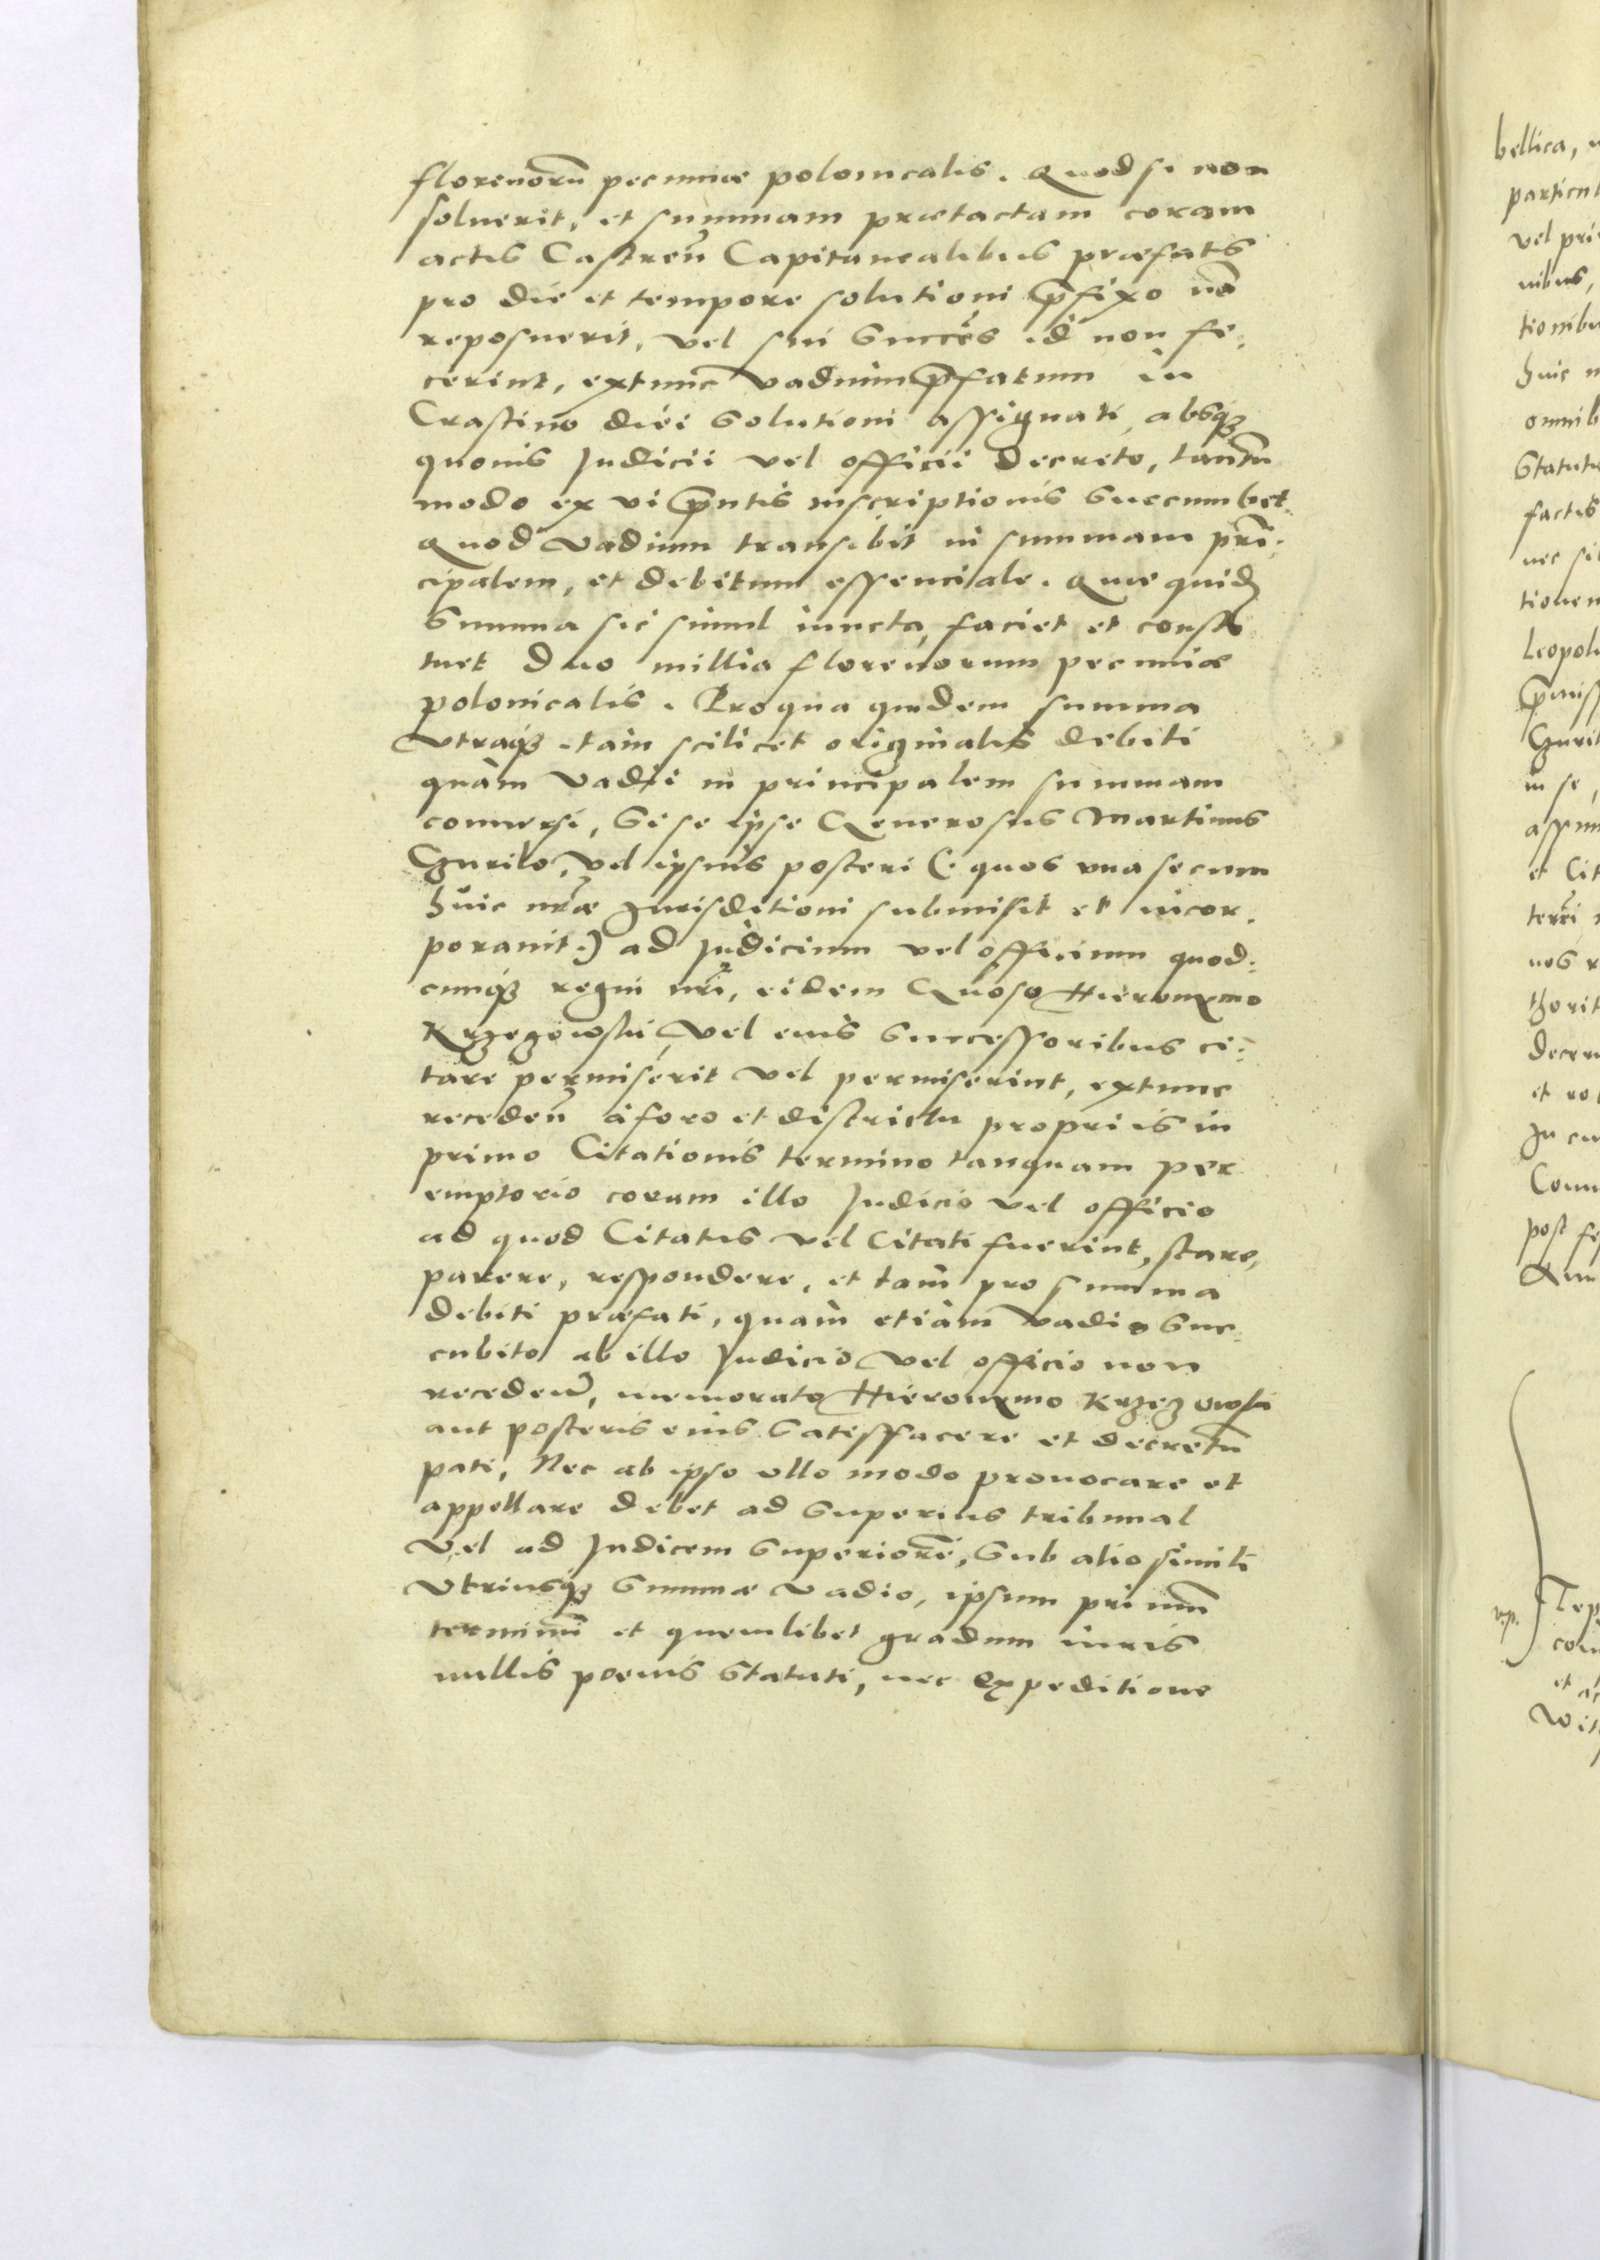 florenorũ pecuniæ polonicalis. Quod si non
soluerit, et summam prætactam coram
actis Castreñ Capitanealibus præfatis
pro die et tempore solutioni p̃fixo nõ
reposuerit, vel sui Succẽs id non fe:
cerint, extunc vadium p̃fatum in
Crastino diei Solutioni assignati, absq3
quouis Judicii vel officii Decreto, tantũ
modo ex vi p̃ntis inscriptionis Succumbet.
Quod vadium transibit in summam prĩ:
cipalem, et debitum essenciale. Quæ quid
Summa sic simul iuncta, faciet et consti
tuet Duo millia florenorum pecuniæ
polonicalis. Pro qua quidem summa
vtraq3 tam scilicet originalis debiti
quàm vadii in principalem summam
conuersi, Si se ipse Generosus Martinus
Gurilo, vel ipsius posteri (: quos vna secum
huic nr̃æ Jurisditioni submisit et incor.
porauit.) ad Judicium vel officium quod:
cunq3 regni nr̃i, eidem Gñoso Hieronymo
Krzezowski, vel eius Successoribus ci:
tare permiserit vel permiserint, extunc
recedeñ à foro et districtu propriis in
primo Citationis termino tanquam per
emptorio coram illo Judicio vel officio
ad quod Citatus vel Citati fuerint, stare,
parere, respondere, et tam pro summa
debiti præfati, quàm etiàm vadio Suc
cubito ab illo Judicio vel officio non
recedeñ, memorato Hieronymo Krzezowski
aut posteris eius Satisfacere et decretũ
pati, Nec ab ipso ullo modo prouocare et
appellare debet ad Superius tribunal
Vel ad Judicem Superiorẽ, Sub alio simili
Vtriusq3 Summæ vadio, ipsum primũ
terminũ et quemlibet gradum iuris
nullis poenis Statuti, nec Expeditione
bellica,
vel
huic
omnib
Statut
factis
nec
Leopol
in se,
et Cit
Decer
post